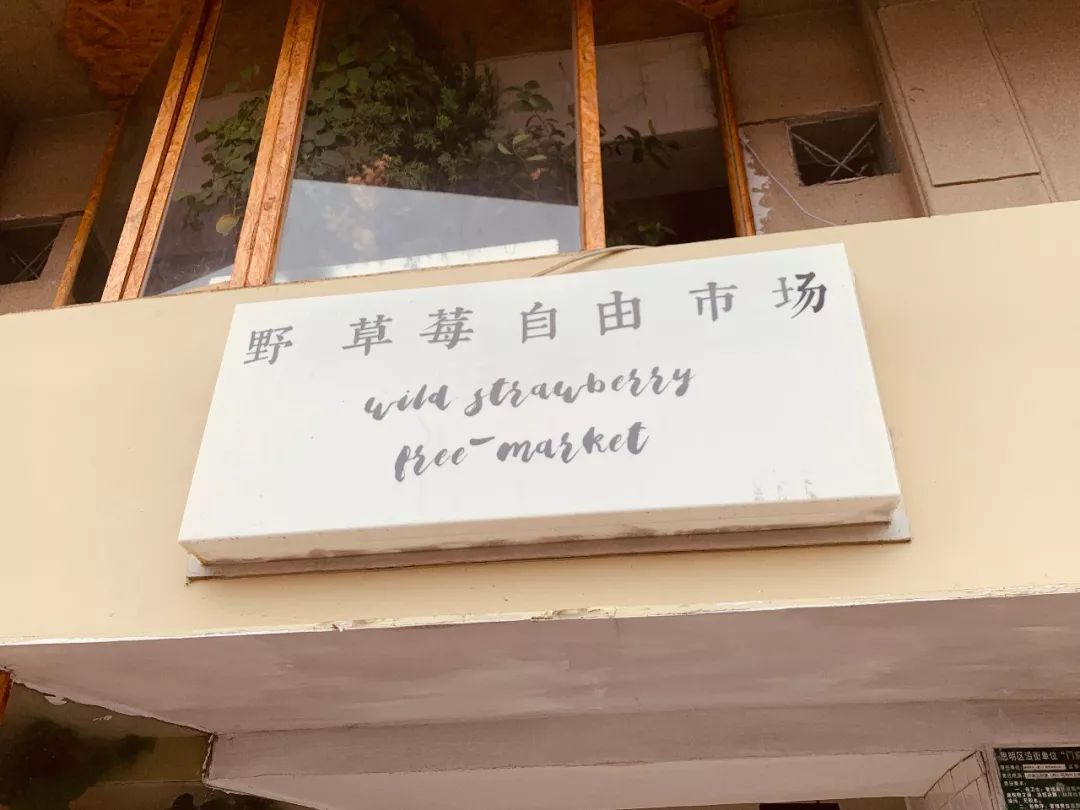 野草莓自由市场
wild strawberry
free-market
思明区沿街单位"门前